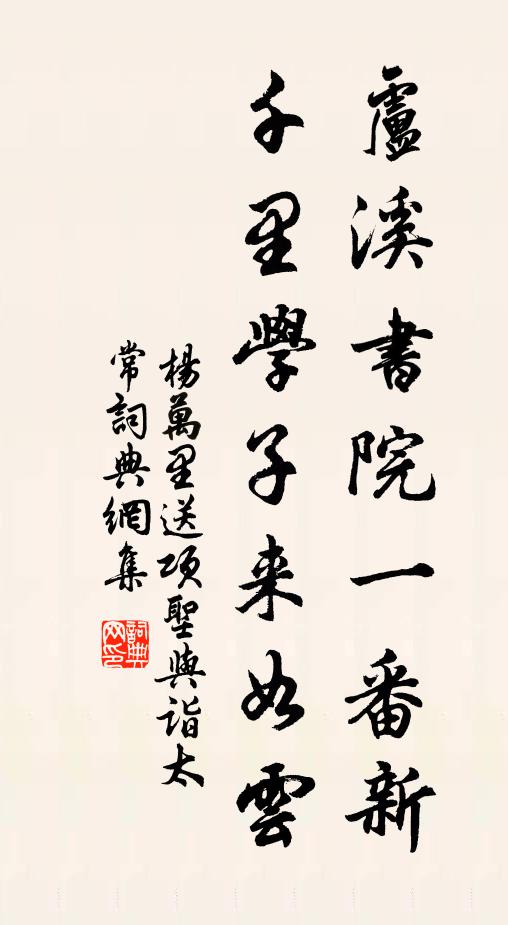 盧溪書院一番新
千里學子来如雲
楊萬里送項聖與詣太
常詞典網集
詞典网印